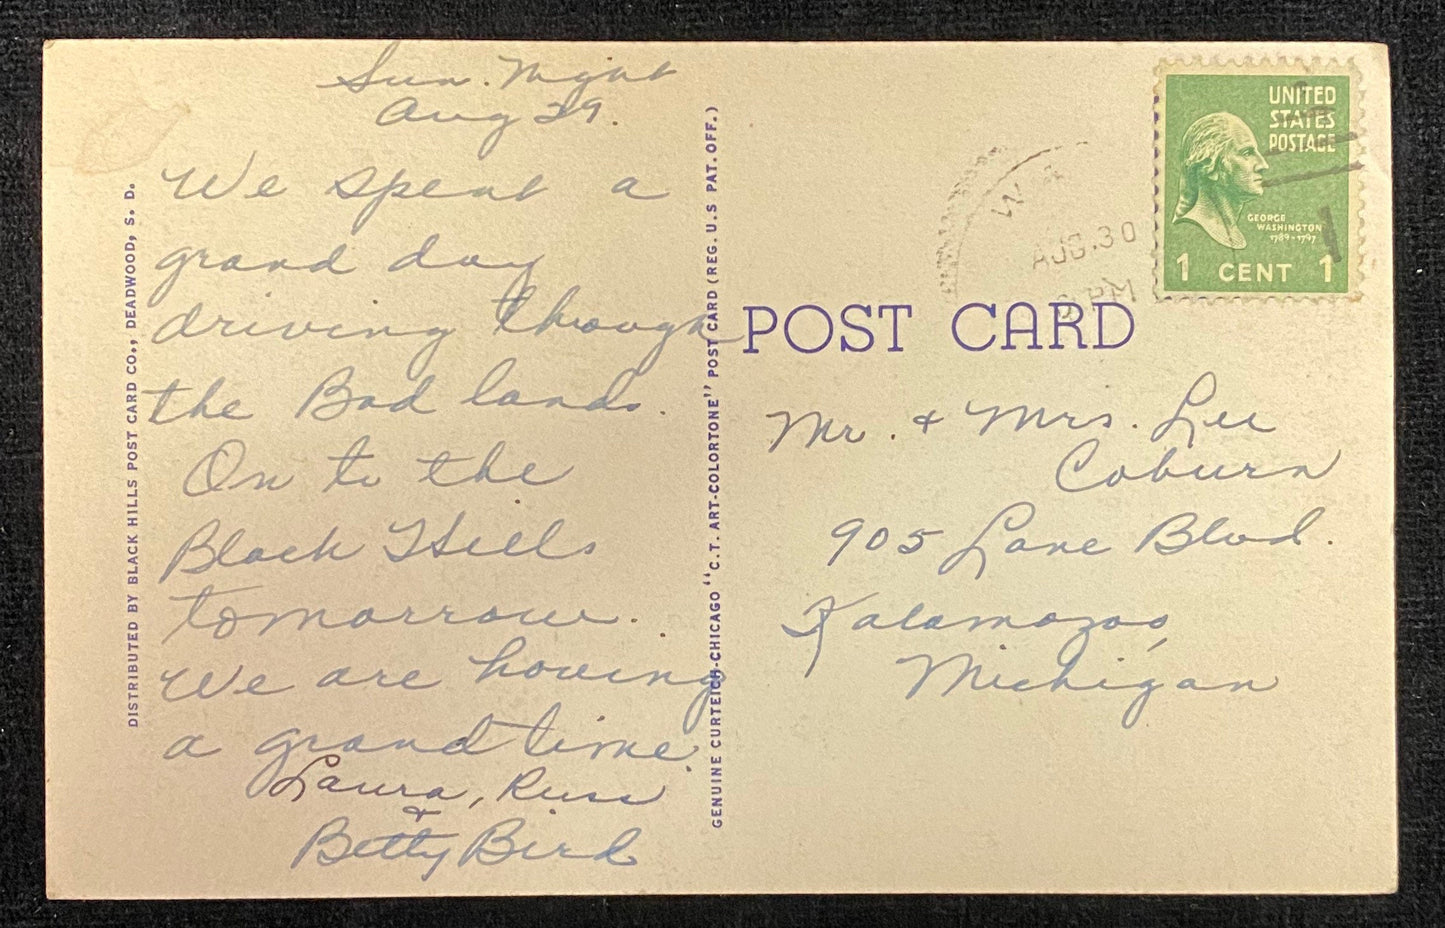 Sun. Night
Aug 29.
We spent a
grand day
driving through
the Bad lands.
On to the
Black Hills
tomorrow.
We are having
a grand time.
Laura, Russ
+
Betty Bird
DISTRIBUTED BY BLACK HILLS POST CARD CO., DEADWOOD, S. D.
GENUINE CURTEICH-CHICAGO "C.T. ART-COLORTONE" POST CARD (REG. U.S PAT. OFF.)
POST CARD
AUG.30
PM
UNITED
STATES
POSTAGE
GEORGE
WASHINGTON
1789-1797
1 CENT 1
Mr. + Mrs. Lee
Coburn
905 Lane Blvd.
Kalamazoo,
Michigan